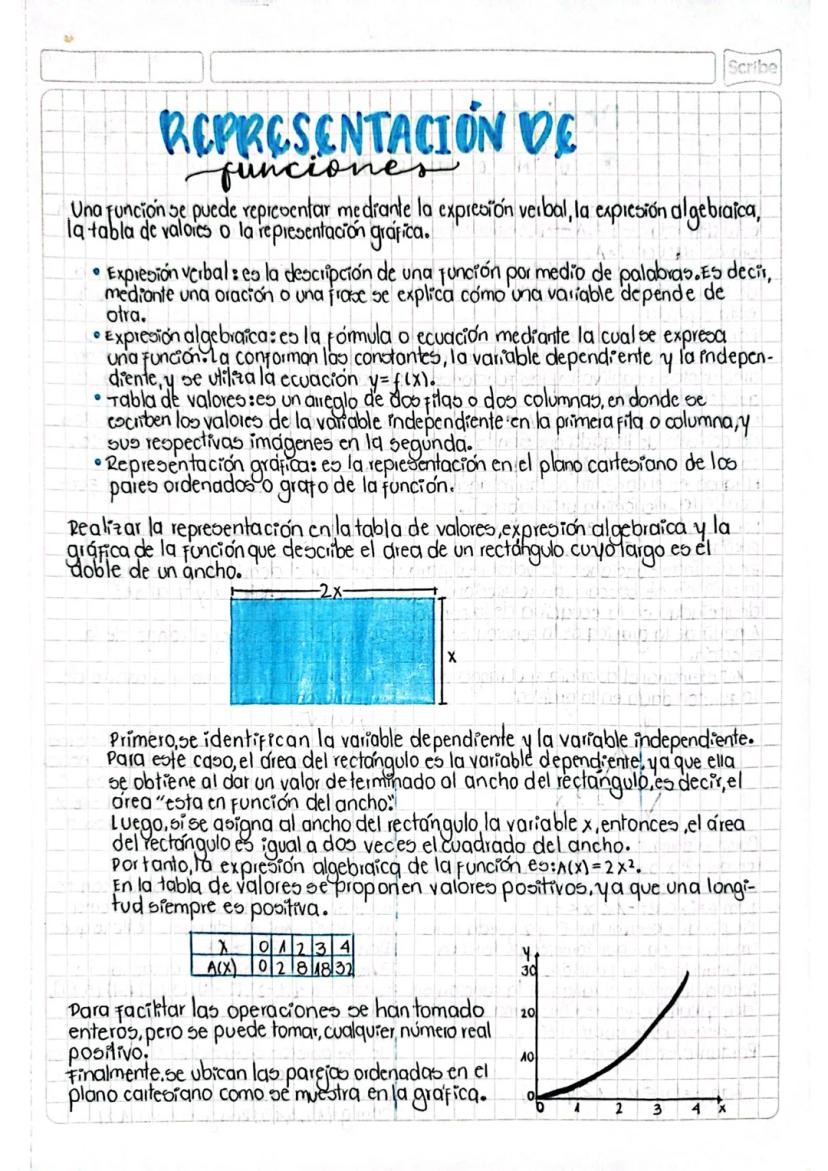 Scribe
REPRESENTACIÓN DE
funciones
Una función se puede representar mediante la expresión verbal, la expresión algebraica,
la tabla de valores o la representación gráfica.
• Expresión verbal: es la descripción de una función por medio de palabras. Es decir,
mediante una oración o una frase se explica cómo una variable depende de
otra.
• Expresión algebraica: es la fórmula o ecuación mediante la cual se expresa
una función. La conforman las constantes, la variable dependiente y la indepen-
diente, y se utiliza la ecuación y=f(x).
• Tabla de valores: es un arreglo de dos filas o dos columnas, en donde se
escriben los valores de la variable independiente en la primera fila o columna, y
sus respectivas imágenes en la segunda.
• Representación gráfica: es la representación en el plano cartesiano de los
pares ordenados o grafo de la función.
Realizar la representación en la tabla de valores, expresión algebraica y la
gráfica de la función que describe el área de un rectángulo cuyo largo es el
doble de un ancho.
2x
x
Primero, se identifican la variable dependiente y la variable independiente.
Para este caso, el área del rectángulo es la variable dependiente, ya que ella
se obtiene al dar un valor determinado al ancho del rectángulo, es decir, el
área "esta en función del ancho."
Luego, si se asigna al ancho del rectángulo la variable x, entonces, el área
del rectángulo es igual a dos veces el cuadrado del ancho.
Por tanto, la expresión algebraica de la función es: A(x)=2x².
En la tabla de valores se proponen valores positivos, ya que una longi-
tud siempre es positiva.
X 0 1 2 3 4
A(X) 0 2 8 18 32
Para facilitar las operaciones se han tomado
enteros, pero se puede tomar, cualquier número real
positivo.
Finalmente, se ubican las parejas ordenadas en el
plano cartesiano como se muestra en la gráfica.
Y
30
20
10
0
0 1 2 3 4 x